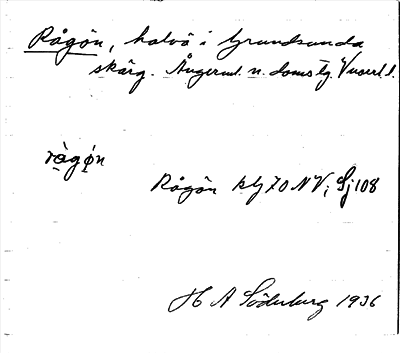 Rågön, halvö i Grundsunda
skärg. Ångerml. n. doms tg. Vnorrl. l.
rågøn
Rågön kbl 70 NV; Sj 108
H A Söderberg 1936